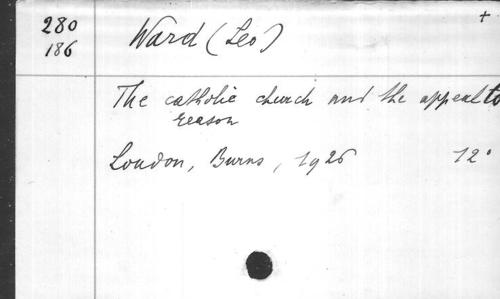 280 Ward (Leo) +
186
The catholic church and the appeal to
reason
London, Burns, 1926 12°